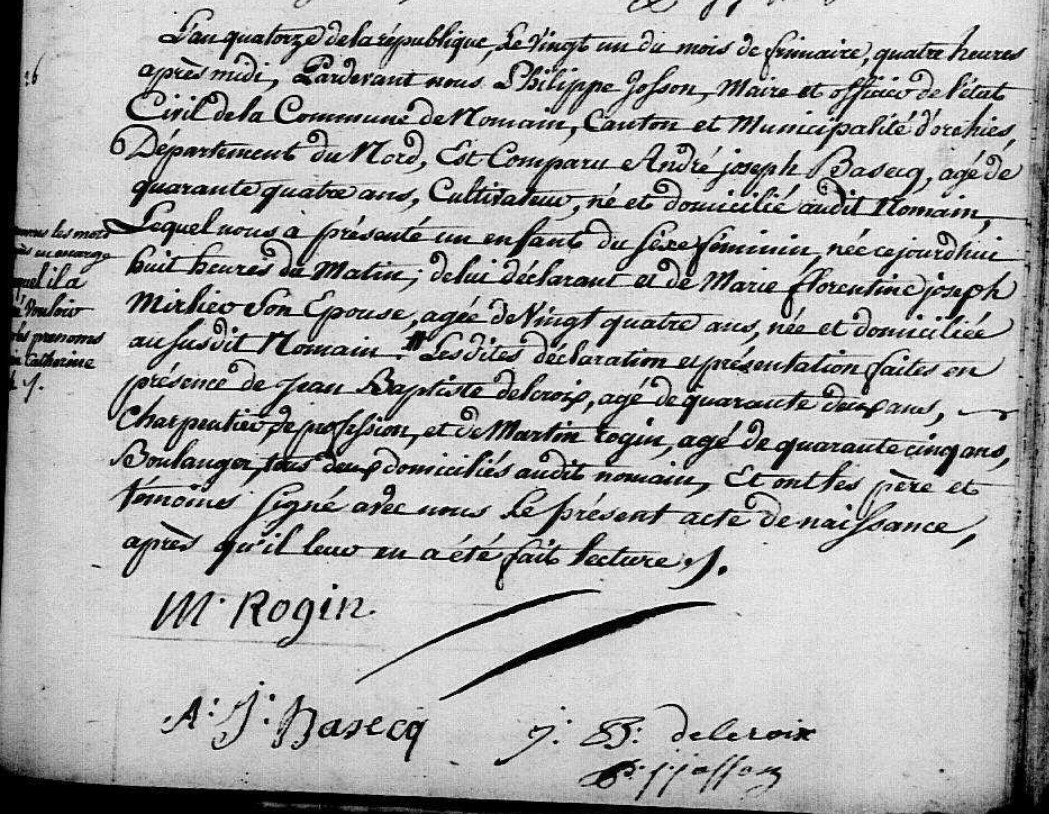 L'an quatorze de la république, Le Vingt un du mois de frimaire, quatre heures
après midi, Pardevant nous Philippe Josson, Maire et officier de l'état
Civil de la Commune de Nomain, Canton et Municipalité d'orchies,
Département du Nord, Est Comparu André joseph Basecq, agé de
quarante quatre ans, Cultivateur, né et domicilié audit Nomain,
Lequel nous a présenté un enfant du sexe féminin, née cejourdhui
huit heures du Matin, de lui déclarant et de Marie florentine joseph
Mirlier Son Epouse, agée de Vingt quatre ans, née et domiciliée
au susdit Nomain. # Lesdites déclaration et présentation faites en
présence de Jean Baptiste delcroix, agé de quarante deux ans,
Charpentier de profession, et de Martin rogin, agé de quarante cinq ans,
Boulanger, tous deux domiciliés audit nomain, Et ont les père et
témoins signé avec nous le présent acte de naissance,
après qu'il leur en a été fait lecture ./.
les mots
en marge
quel il a
Vouloir
les prenoms
Catherine
./.
M. Rogin.
A: J: Basecq
j: B: delcroix
P. j. josson